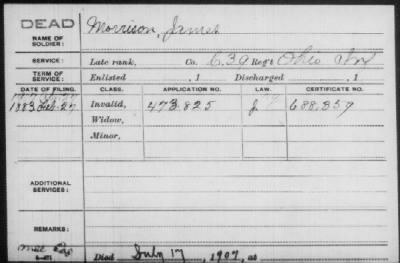 DEAD
NAME OF
SOLDIER:
Morrison, James
SERVICE:
Late rank, Co. C. 39 Reg't Ohio Inf
TERM OF
SERVICE:
Enlisted , 1 Discharged , 1
DATE OF FILING. CLASS. APPLICATION NO. LAW. CERTIFICATE NO.
1883 Feb. 27 Invalid, 473.825 J 688.357
Widow,
Minor,
ADDITIONAL
SERVICES:
REMARKS:
Died July 17, 1907, at